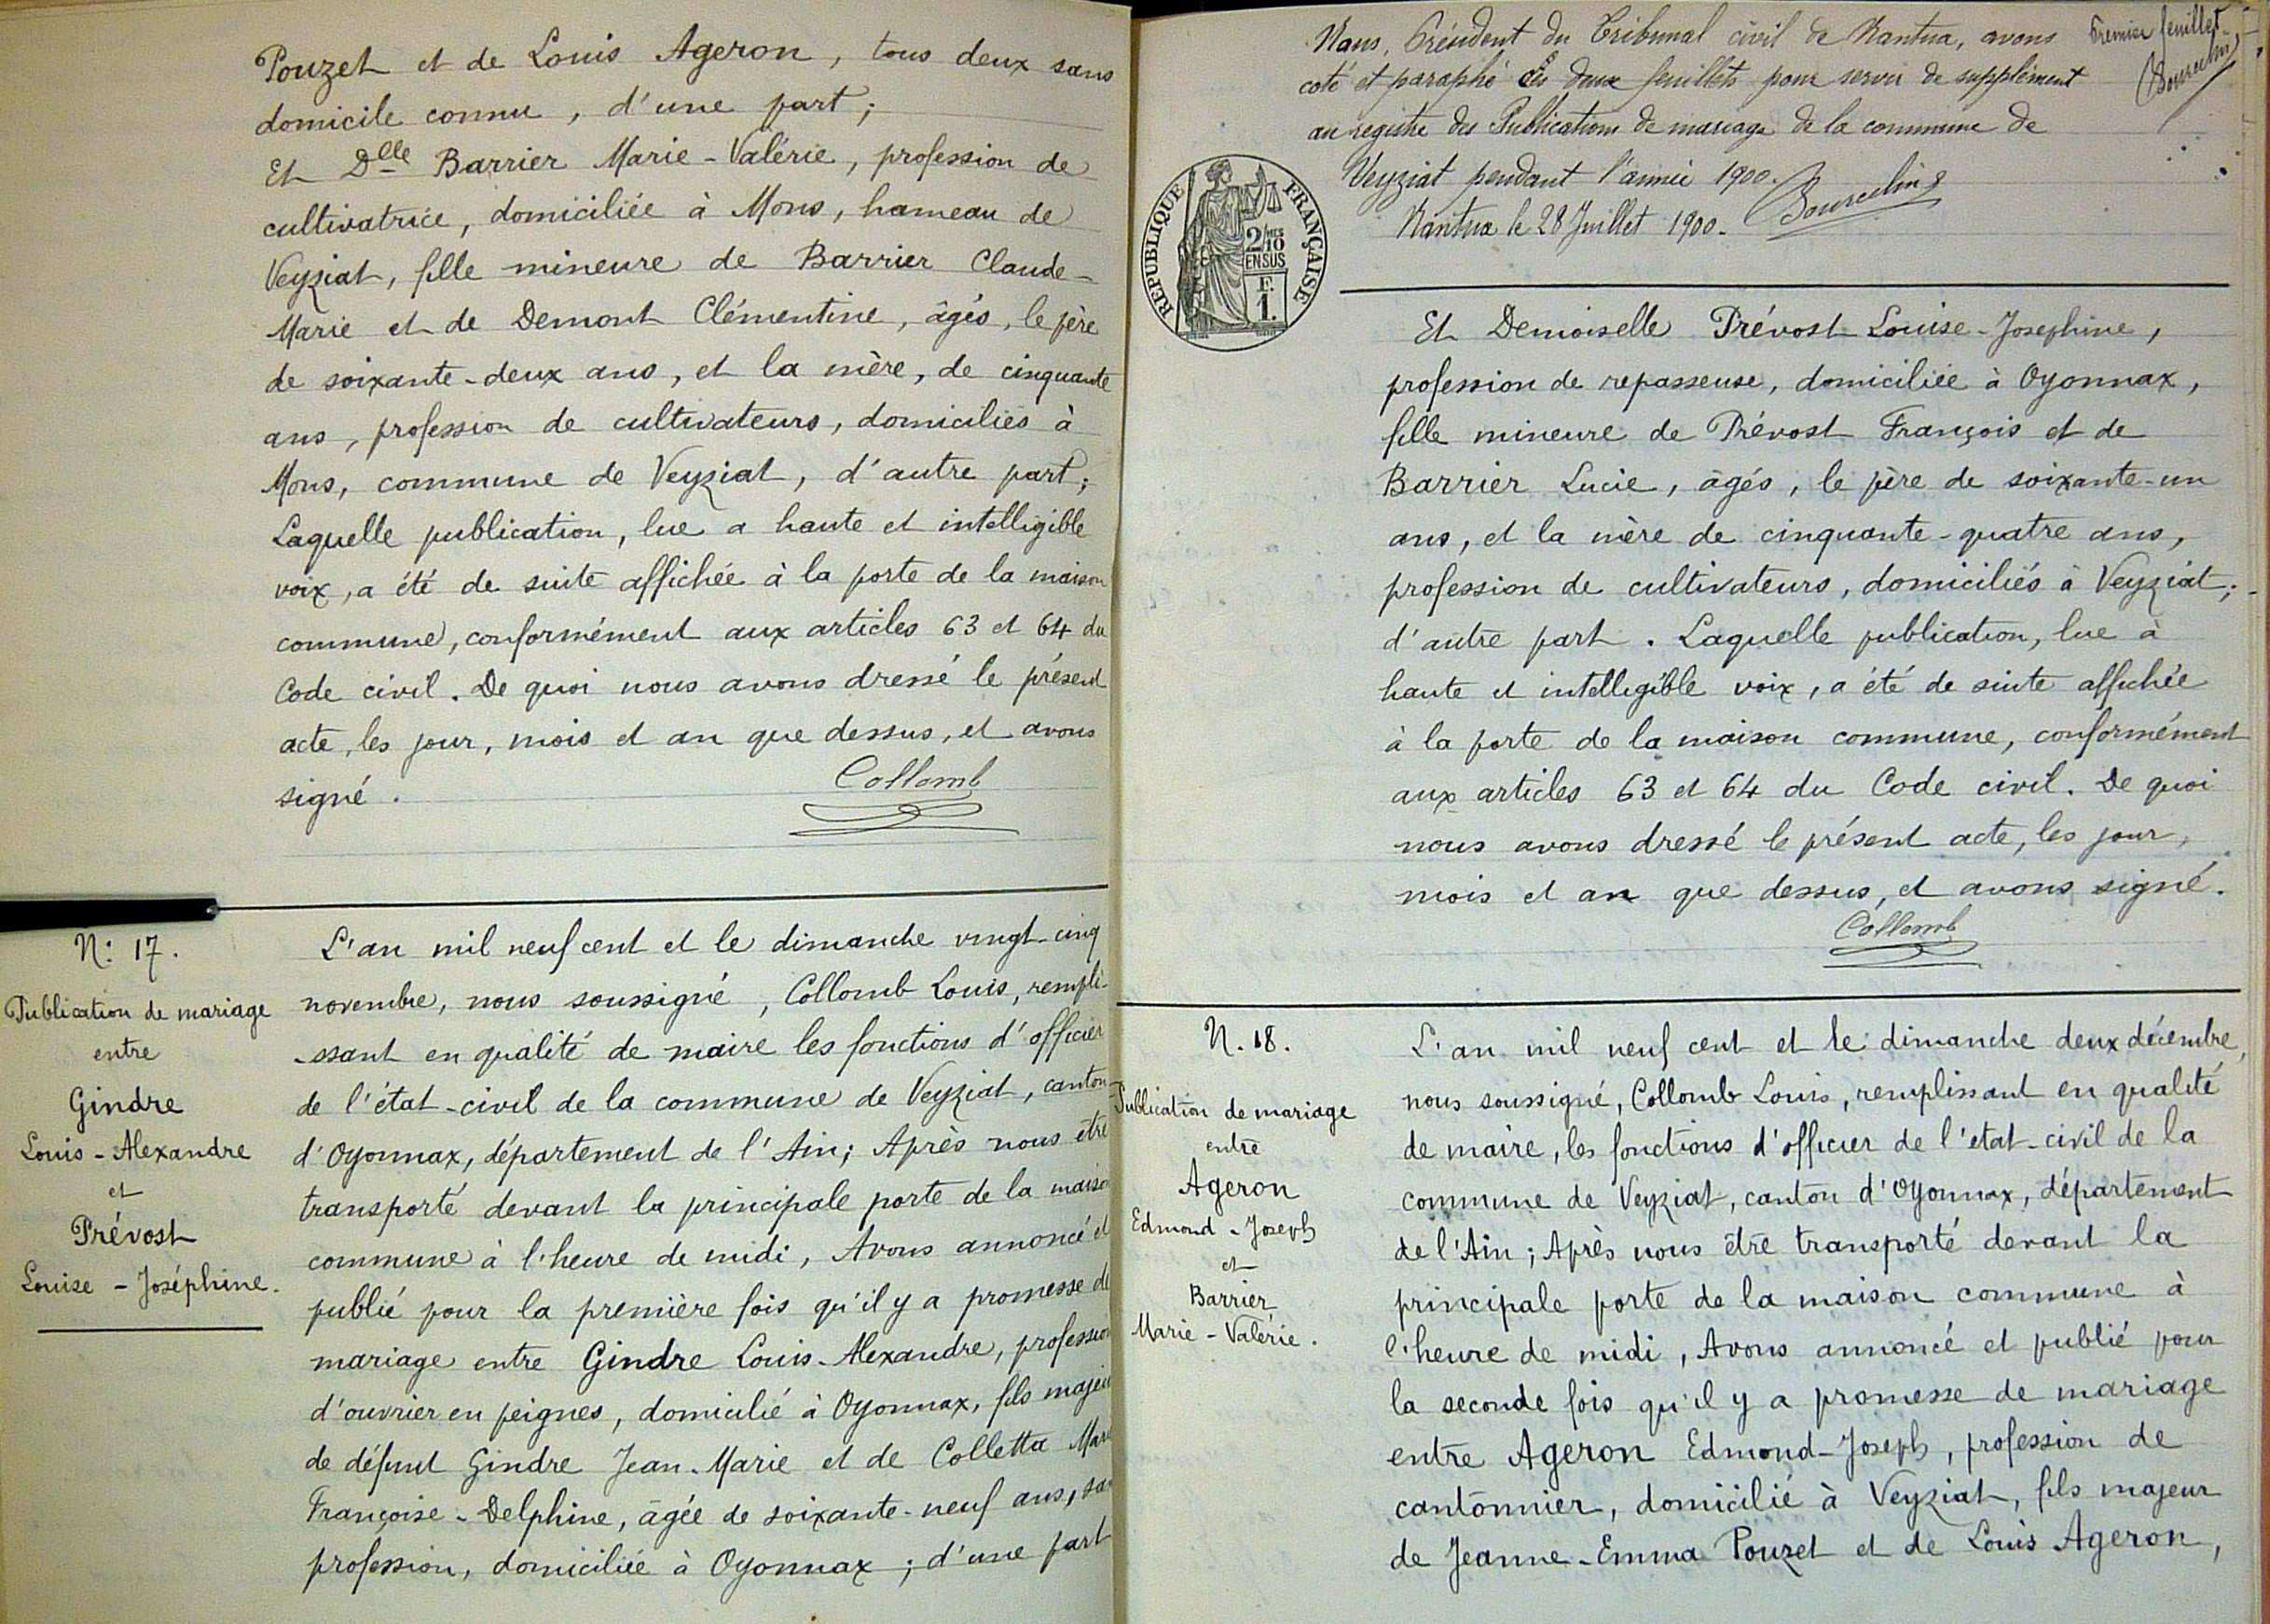 Pouzet et de Louis Ageron, tous deux sans
domicile connu, d'une part;
Et Dlle Barrier Marie-Valérie, profession de
cultivatrice, domiciliée à Mons, hameau de
Veyziat, fille mineure de Barrier Claude-
Marie et de Demont Clémentine, âgés, le père
de soixante-deux ans, et la mère, de cinquante
ans, profession de cultivateurs, domiciliés à
Mons, commune de Veyziat, d'autre part;
Laquelle publication, lue a haute et intelligible
voix, a été de suite affichée à la porte de la maison
commune, conformément aux articles 63 et 64 du
Code civil. De quoi nous avons dressé le présent
acte, les jour, mois et an que dessus, et avons
signé.
Collomb
N: 17.
Publication de mariage
entre
Gindre
Louis-Alexandre
et
Prévost
Louise-Joséphine.
L'an mil neuf cent et le dimanche vingt-cinq
novembre, nous soussigné, Collomb Louis, rempli-
-ssant en qualité de maire les fonctions d'officier
de l'état-civil de la commune de Veyziat, canton
d'Oyonnax, département de l'Ain; Après nous être
transporté devant la principale porte de la maison
commune à l'heure de midi, Avons annoncé et
publié pour la première fois qu'il y a promesse de
mariage entre Gindre Louis-Alexandre, profession
d'ouvrier en peignes, domicilié à Oyonnax, fils majeur
de défunt Gindre Jean-Marie et de Colletta Marie
Françoise-Delphine, âgée de soixante-neuf ans, san
profession, domiciliée à Oyonnax; d'une part
Nous, Président du Tribunal civil de Nantua, avons
coté et paraphé ces deux feuillets pour servir de supplément
au registre des Publications de mariage de la commune de
Veyziat pendant l'année 1900.
Nantua le 28 Juillet 1900.
Premier feuillet
RÉPUBLIQUE FRANÇAISE
2/10
EN SUS
F.
1.
Et Demoiselle Prévost Louise-Josephine,
profession de repasseuse, domiciliée à Oyonnax,
fille mineure de Prévost François et de
Barrier Lucie, âgés, le père de soixante-un
ans, et la mère de cinquante-quatre ans,
profession de cultivateurs, domiciliés à Veyziat;
d'autre part. Laquelle publication, lue à
haute et intelligible voix, a été de suite affichée
à la porte de la maison commune, conformément
aux articles 63 et 64 du Code civil. De quoi
nous avons dressé le présent acte, les jour,
mois et an que dessus, et avons signé.
Collomb
N. 18.
Publication de mariage
entre
Ageron
Edmond-Joseph
et
Barrier
Marie-Valérie.
L'an mil neuf cent et le dimanche deux décembre,
nous soussigné, Collomb Louis, remplissant en qualité
de maire, les fonctions d'officier de l'etat-civil de la
commune de Veyziat, canton d'Oyonnax, département
de l'Ain; Après nous être transporté devant la
principale porte de la maison commune à
l'heure de midi, Avons annoncé et publié pour
la seconde fois qu'il y a promesse de mariage
entre Ageron Edmond-Joseph, profession de
cantonnier, domicilié à Veyziat, fils majeur
de Jeanne-Emma Pouzet et de Louis Ageron,